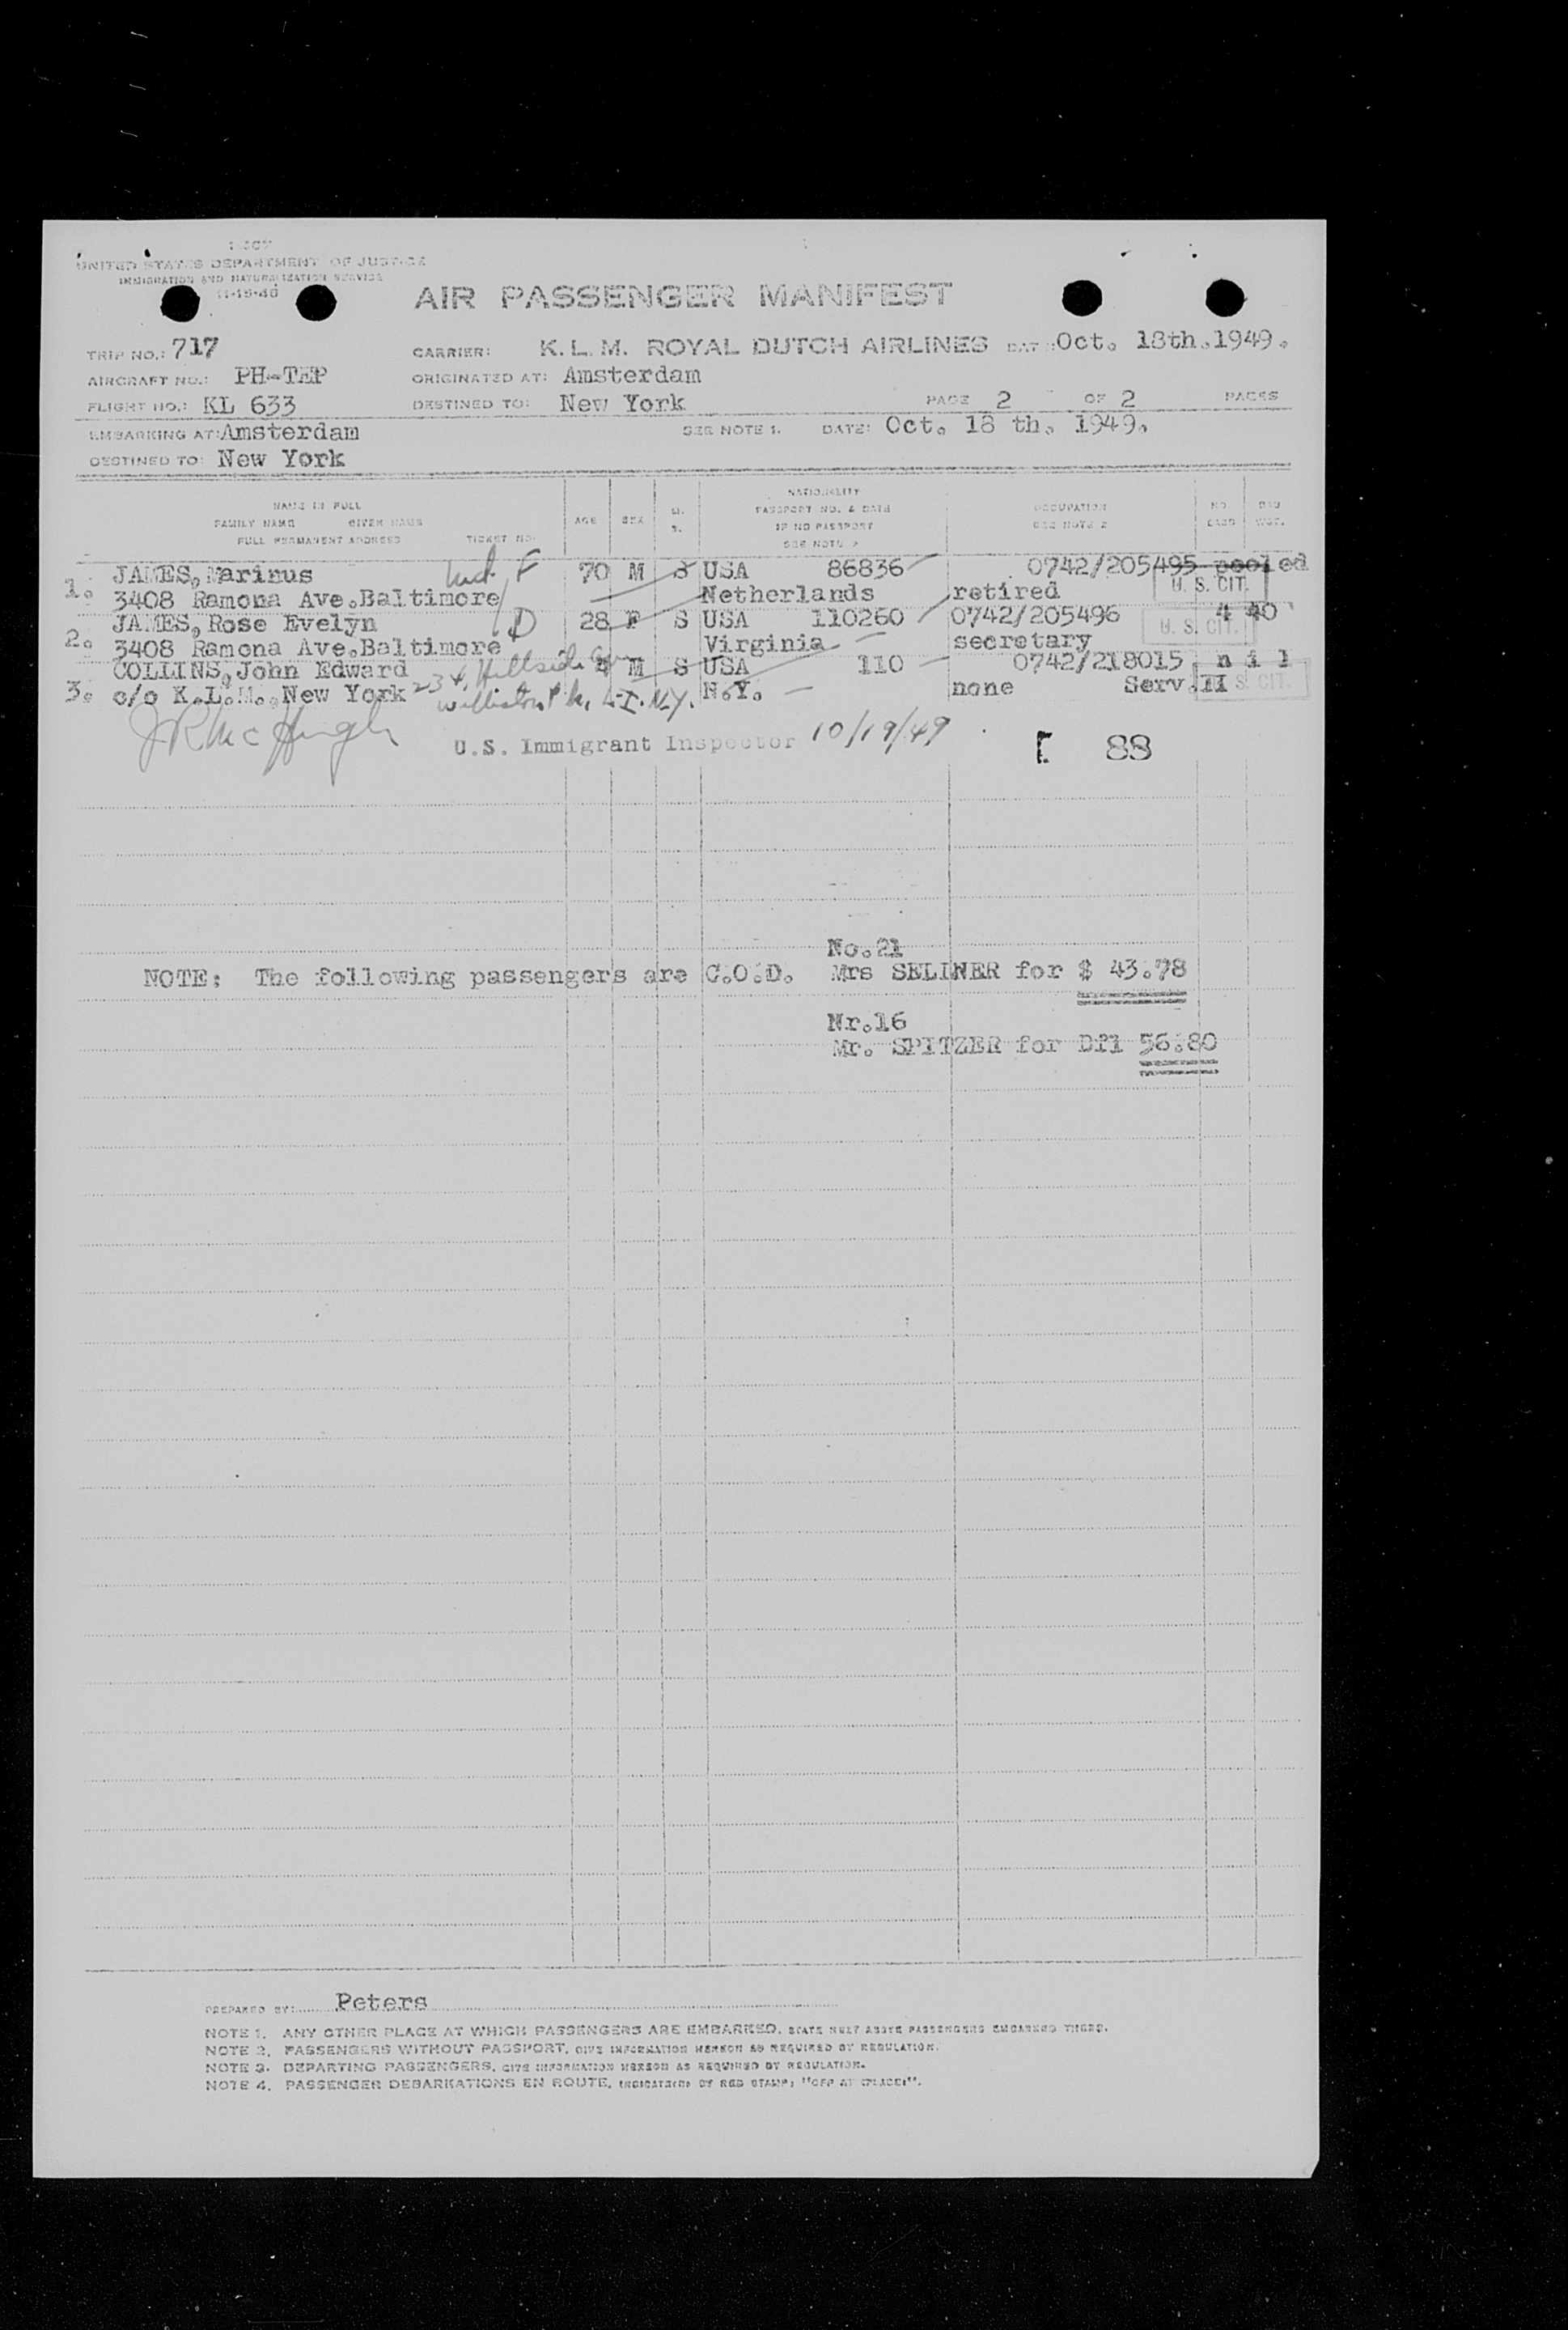 UNITED STATES DEPARTMENT OF JUSTICE
IMMIGRATION AND NATURALIZATION SERVICE
11-15-46
AIR PASSENGER MANIFEST
TRIP NO.: 717 CARRIER: K.L.M. ROYAL DUTCH AIRLINES DATE: Oct. 18th.1949.
AIRCRAFT NO.: PH-TEP ORIGINATED AT: Amsterdam
FLIGHT NO.: KL 633 DESTINED TO: New York PAGE 2 OF 2 PAGES
EMBARKING AT: Amsterdam SEE NOTE 1. DATE: Oct. 18 th. 1949.
DESTINED TO: New York
NAME IN FULL
FAMILY NAME GIVEN NAME
FULL PERMANENT ADDRESS TICKET NO.
AGE SEX M. S.
NATIONALITY
PASSPORT NO. & DATE
IF NO PASSPORT
SEE NOTE 2
OCCUPATION
SEE NOTE 2
NO. BAGG WGT.
1. JAMES, Marinus F 70 M S USA 86836 0742/205495 pooled
3408 Ramona Ave.Baltimore Netherlands retired U. S. CIT.
2. JAMES, Rose Evelyn D 28 F S USA 110260 0742/205496 4 40
3408 Ramona Ave.Baltimore Virginia secretary U. S. CIT.
3. COLLINS, John Edward 4 M S USA 110 0742/218015 n i l
c/o K.L.M. New York 234 Hillside Ave N.Y. none Serv.II S. CIT.
Williston Pk, L.I. N.Y.
J R McHugh U.S. Immigrant Inspector 10/19/49 88
No.21
NOTE: The following passengers are C.O.D. Mrs SELINER for $ 43.78
Nr.16
Mr. SPITZER for Dfl 56.80
PREPARED BY: Peters
NOTE 1. ANY OTHER PLACE AT WHICH PASSENGERS ARE EMBARKED, STATE NEXT ABOVE PASSENGERS EMBARKED THERE.
NOTE 2. PASSENGERS WITHOUT PASSPORT, GIVE INFORMATION HEREON AS REQUIRED BY REGULATION.
NOTE 3. DEPARTING PASSENGERS, GIVE INFORMATION HEREON AS REQUIRED BY REGULATION.
NOTE 4. PASSENGER DEBARKATIONS EN ROUTE, INDICATE(D) BY RED STAMP: "OFF AT (PLACE)".